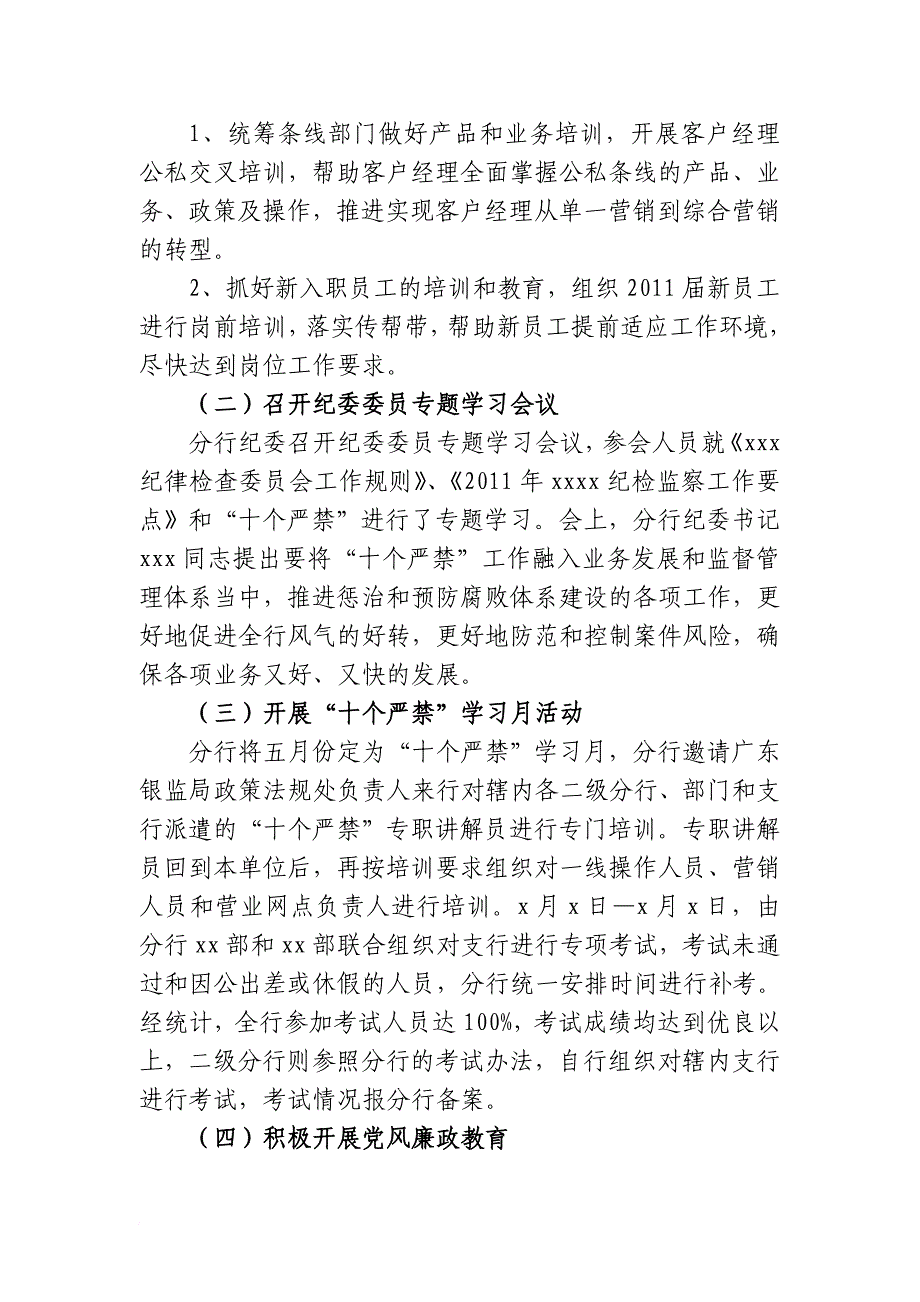 1、统筹条线部门做好产品和业务培训，开展客户经理
公私交叉培训，帮助客户经理全面掌握公私条线的产品、业
务、政策及操作，推进实现客户经理从单一营销到综合营销
的转型。
2、抓好新入职员工的培训和教育，组织 2011 届新员工
进行岗前培训，落实传帮带，帮助新员工提前适应工作环境，
尽快达到岗位工作要求。
（二）召开纪委委员专题学习会议
分行纪委召开纪委委员专题学习会议，参会人员就《xxx
纪律检查委员会工作规则》、《2011 年 xxxx 纪检监察工作要
点》和“十个严禁”进行了专题学习。会上，分行纪委书记
xxx 同志提出要将“十个严禁”工作融入业务发展和监督管
理体系当中，推进惩治和预防腐败体系建设的各项工作，更
好地促进全行风气的好转，更好地防范和控制案件风险，确
保各项业务又好、又快的发展。
（三）开展“十个严禁”学习月活动
分行将五月份定为“十个严禁”学习月，分行邀请广东
银监局政策法规处负责人来行对辖内各二级分行、部门和支
行派遣的“十个严禁”专职讲解员进行专门培训。专职讲解
员回到本单位后，再按培训要求组织对一线操作人员、营销
人员和营业网点负责人进行培训。x 月 x 日—x 月 x 日，由
分行 xx 部和 xx 部联合组织对支行进行专项考试，考试未通
过和因公出差或休假的人员，分行统一安排时间进行补考。
经统计，全行参加考试人员达 100%，考试成绩均达到优良以
上，二级分行则参照分行的考试办法，自行组织对辖内支行
进行考试，考试情况报分行备案。
（四）积极开展党风廉政教育